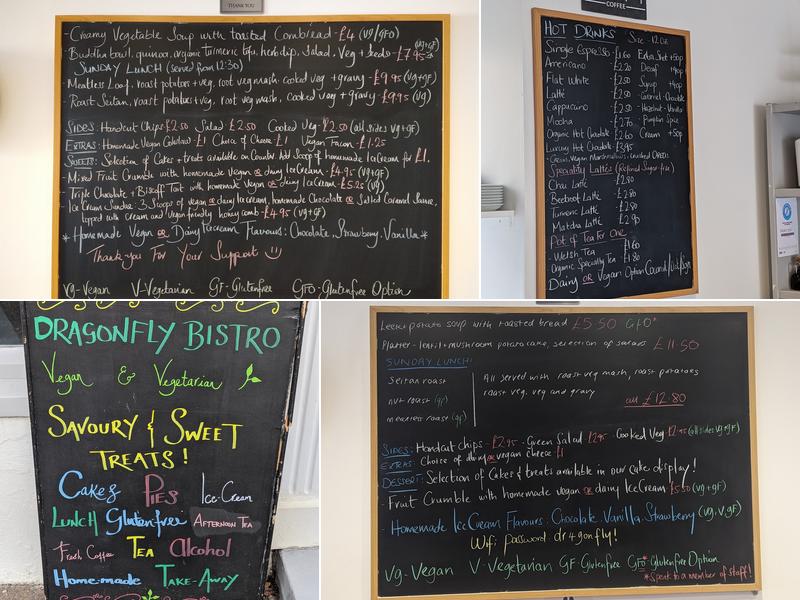 THANK YOU
-Creamy Vegetable Soup with toasted Cornbread -£4 (vg/GFO)
-Buddha bowl, quinoa, organic turmeric tofu, herb dip, Salad, Veg + Seeds -£7.95 (vg+gf)
SUNDAY LUNCH (served from 12:30)
-Meatless Loaf, roast potatoes + veg, root veg mash, cooked veg + gravy -£9.95 (vg+gf)
-Roast Seitan, roast potatoes + veg, root veg mash, cooked veg + gravy -£9.95 (vg)
SIDES: Handcut Chips £2.50 Salad - £2.50 Cooked Veg - £2.50 (all sides vg+gf)
EXTRAS: Homemade Vegan £1 Choice of Cheese £1 Vegan Facon - £1.25
SWEETS: Selection of Cakes + treats available on Counter. Add Scoop of homemade Ice Cream for £1.
-Mixed Fruit Crumble with homemade vegan or dairy Ice Cream - £4.95 (vg+gf)
-Triple Chocolate + Biscoff Tart with homemade vegan or dairy Ice Cream - £5.25 (vg)
-Ice Cream Sundae: 3 Scoops of vegan or dairy Ice cream, homemade Chocolate or Salted Caramel Sauce,
topped with cream and vegan friendly honeycomb - £4.95 (vg+gf)
*Homemade Vegan or Dairy Icecream Flavours: Chocolate, Strawberry, Vanilla*
Thank you For Your Support
vg-Vegan V-Vegetarian GF-Glutenfree GFO-Glutenfree Option
COFFEE
HOT DRINKS Size - 12oz
Single Espresso - £1.60 Extra Shot +50p
Americano - £2.20 Decaf +40p
Flat White - £2.50 Syrup +40p
Latté - £2.50 -Caramel -Chocolate
Cappuccino - £2.50 -Hazelnut -Vanilla
Mocha - £2.70 -Pumpkin Spice
Organic Hot Chocolate - £2.60 Cream +50p
Luxury Hot Chocolate - £3.95
-Cream, Vegan Marshmallows, Crushed Oreos
Speciality Lattés (Refined Sugar-free)
Chai Latté - £2.80
Beetroot Latté - £2.80
Turmeric Latté - £2.80
Matcha Latté - £2.90
Pot of Tea For One
-Welsh Tea - £1.60
Organic Specialty Tea - £1.80
Dairy or Vegan Option
DRAGONFLY BISTRO
Vegan & Vegetarian
SAVOURY & SWEET
TREATS!
Cakes PIES Ice-Cream
LUNCH Glutenfree AFTERNOON TEA
Fresh Coffee TEA Alcohol
Home-made TAKE-AWAY
Leek + potato soup with toasted bread £5.50 GFO*
Platter - lentil + mushroom potato cake, selection of salads £11.50
SUNDAY LUNCH:
Seitan roast
nut roast (gf)
meatless roast (gf)
All served with roast veg mash, roast potatoes
roast veg, veg and gravy
all £12.80
SIDES: Handcut Chips - £2.95 Green Salad £2.95 Cooked Veg £2.95 (all sides vg+gF)
EXTRAS: Choice of dairy or vegan cheese £1
DESSERT: Selection of Cakes & treats available in our cake display!
Fruit Crumble with homemade vegan or dairy Ice Cream £5.50 (vg+gF)
Homemade Ice Cream Flavours: Chocolate, Vanilla, Strawberry (vg,v,gF)
Wifi password: dr4gonfly!
Vg-Vegan V-Vegetarian GF-Glutenfree GFO*-Glutenfree Option
*Speak to a member of staff!